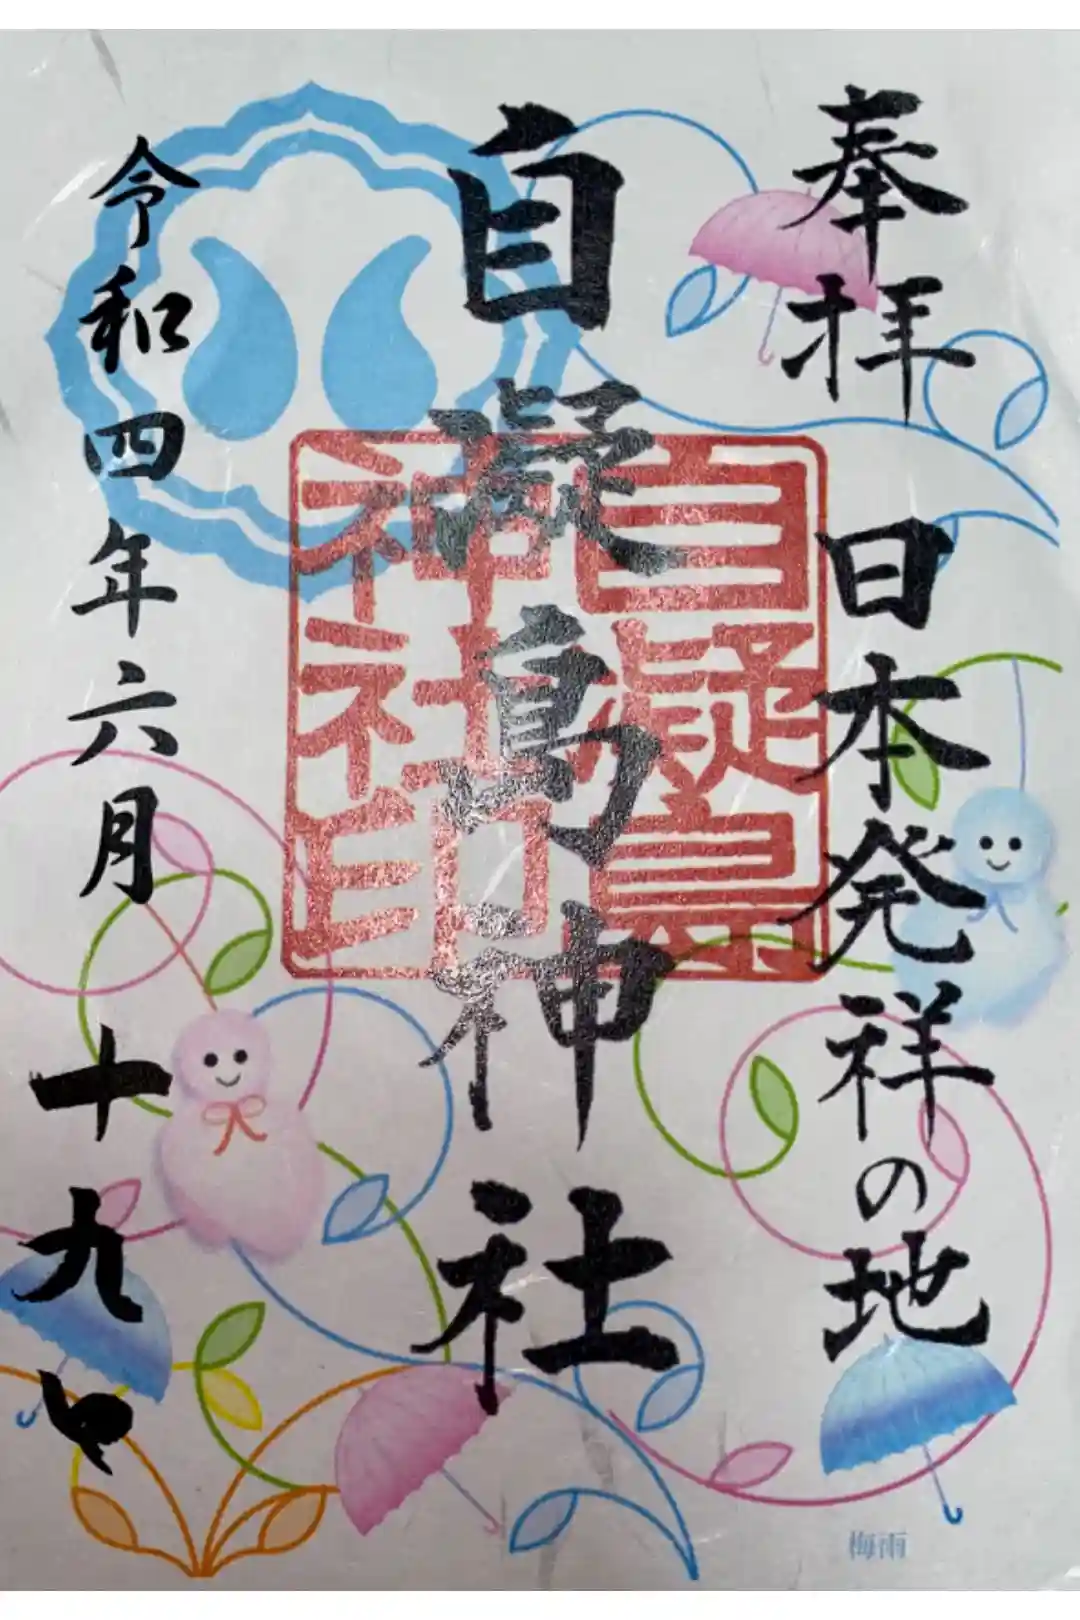 奉拝　日本発祥の地
自凝島神社
自凝島
神社印
令和四年六月十九日
梅雨